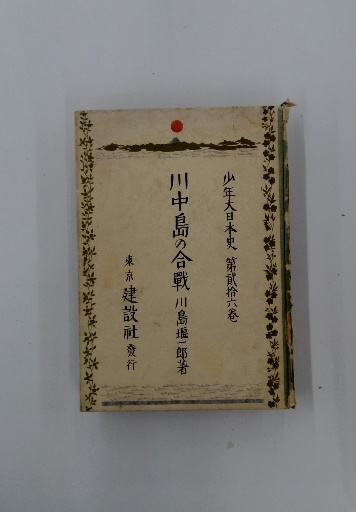 少年大日本史 第貳拾六卷
川中島の合戰 川島堰一郎著
東京 建設社 發行